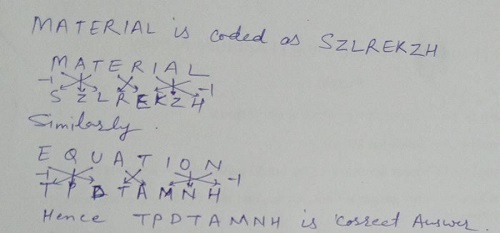 MATERIAL is coded as SZLREKZH
MATERIAL
-1 -1
SZLREKZH
Similarly.
EQUATION
-1 -1
TPDTAMNH
Hence TPDTAMNH is correct Answer.